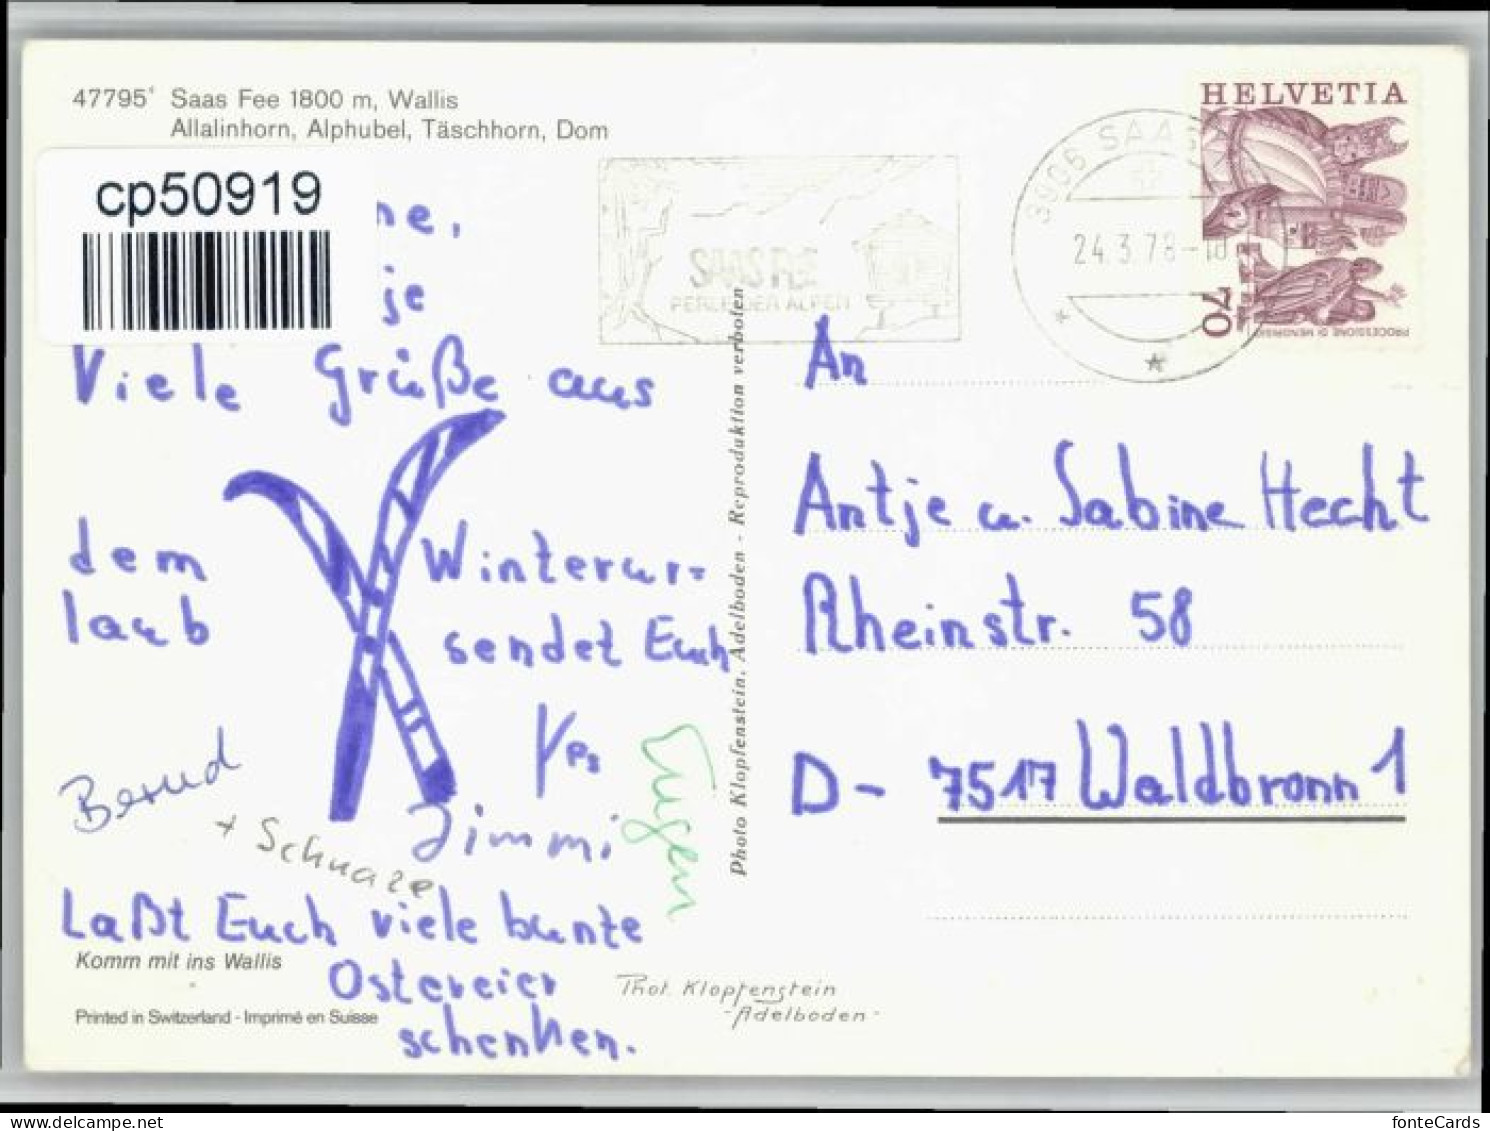 47795* Saas Fee 1800 m, Wallis
Allalinhorn, Alphubel, Täschhorn, Dom
cp50919
ne,
je
Viele Grüße aus
dem Winterur=
laub sendet Euch
Bernd
+ Schnaze
Jimmi
Eugen
Laßt Euch viele bunte
Ostereier
schenken.
Komm mit ins Wallis
Printed in Switzerland - Imprimé en Suisse
Phot. Klopfenstein
- Adelboden -
Photo Klopfenstein, Adelboden - Reproduktion verboten
SAAS FEE
PERLE DER ALPEN
3906 SAAS
24.3.78-18
HELVETIA
70
PROCESSIONE DI MENDRISIO
An
Antje u. Sabine Hecht
Rheinstr. 58
D- 7517 Waldbronn 1
www.delcampe.net
fonteCards